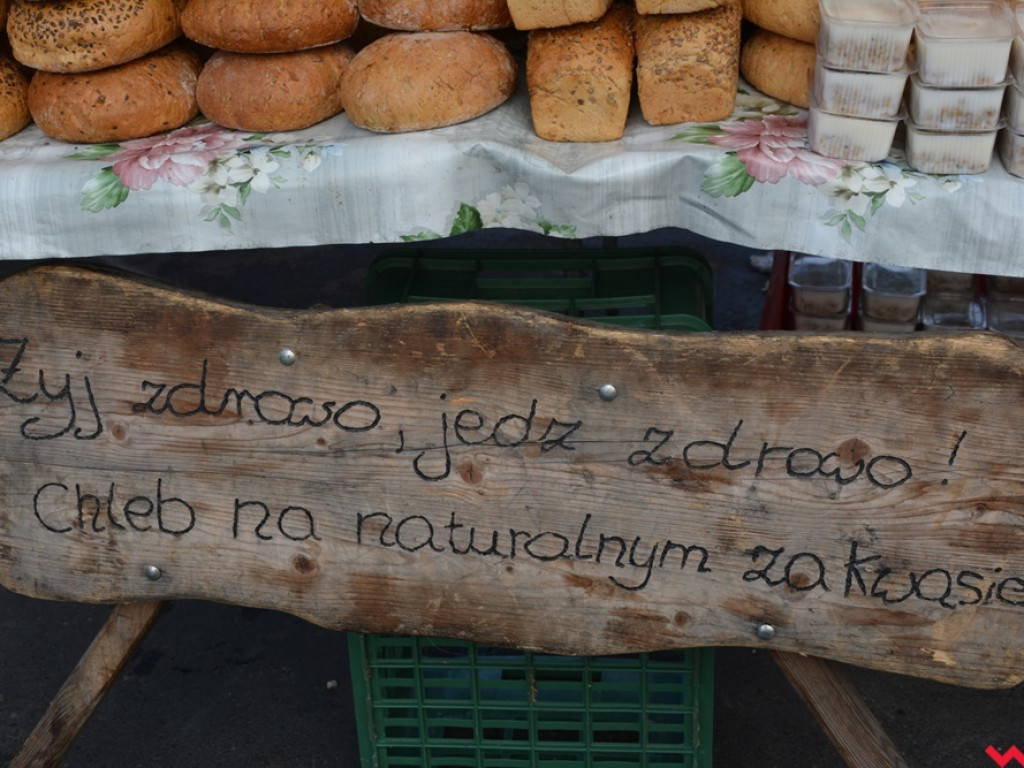 Żyj zdrowo, jedz zdrowo!
Chleb na naturalnym zakwasie